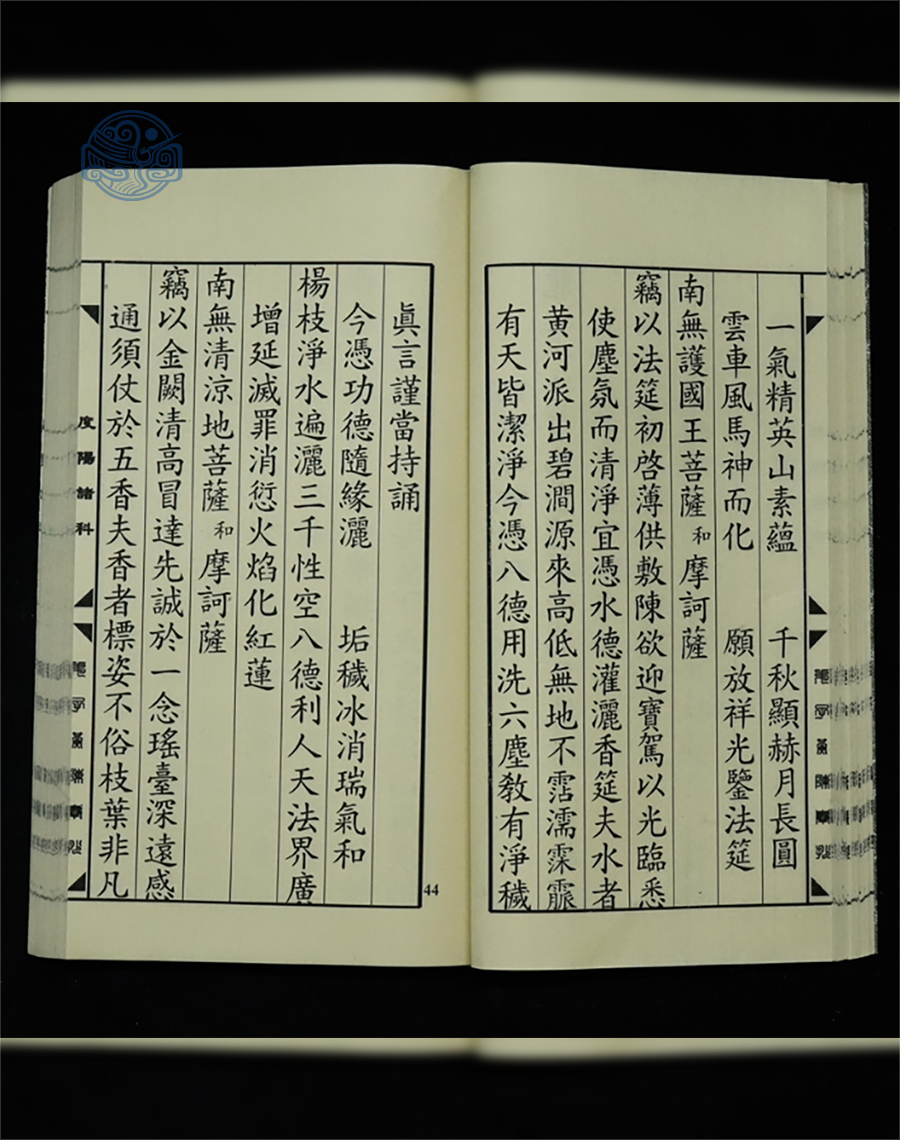 一氣精英山素蘊　千秋顯赫月長圓
雲車風馬神而化　願放祥光鑒法筵
南無護國王菩薩 和 摩訶薩
竊以法筵初啓薄供敷陳欲迎寶駕以光臨悉
使塵氛而清淨宜憑水德灌灑香筵夫水者
黃河派出碧澗源來高低無地不霑濡霂霢
有天皆潔淨今憑八德用洗六塵教有淨穢
眞言謹當持誦
今憑功德隨緣灑　垢穢冰消瑞氣和
楊枝淨水遍灑三千性空八德利人天法界廣
增延滅罪消愆火焰化紅蓮
南無清涼地菩薩 和 摩訶薩
竊以金闕清高冒達先誠於一念瑤臺深遠感
通須仗於五香夫香者標姿不俗枝葉非凡
度陽諸科
44